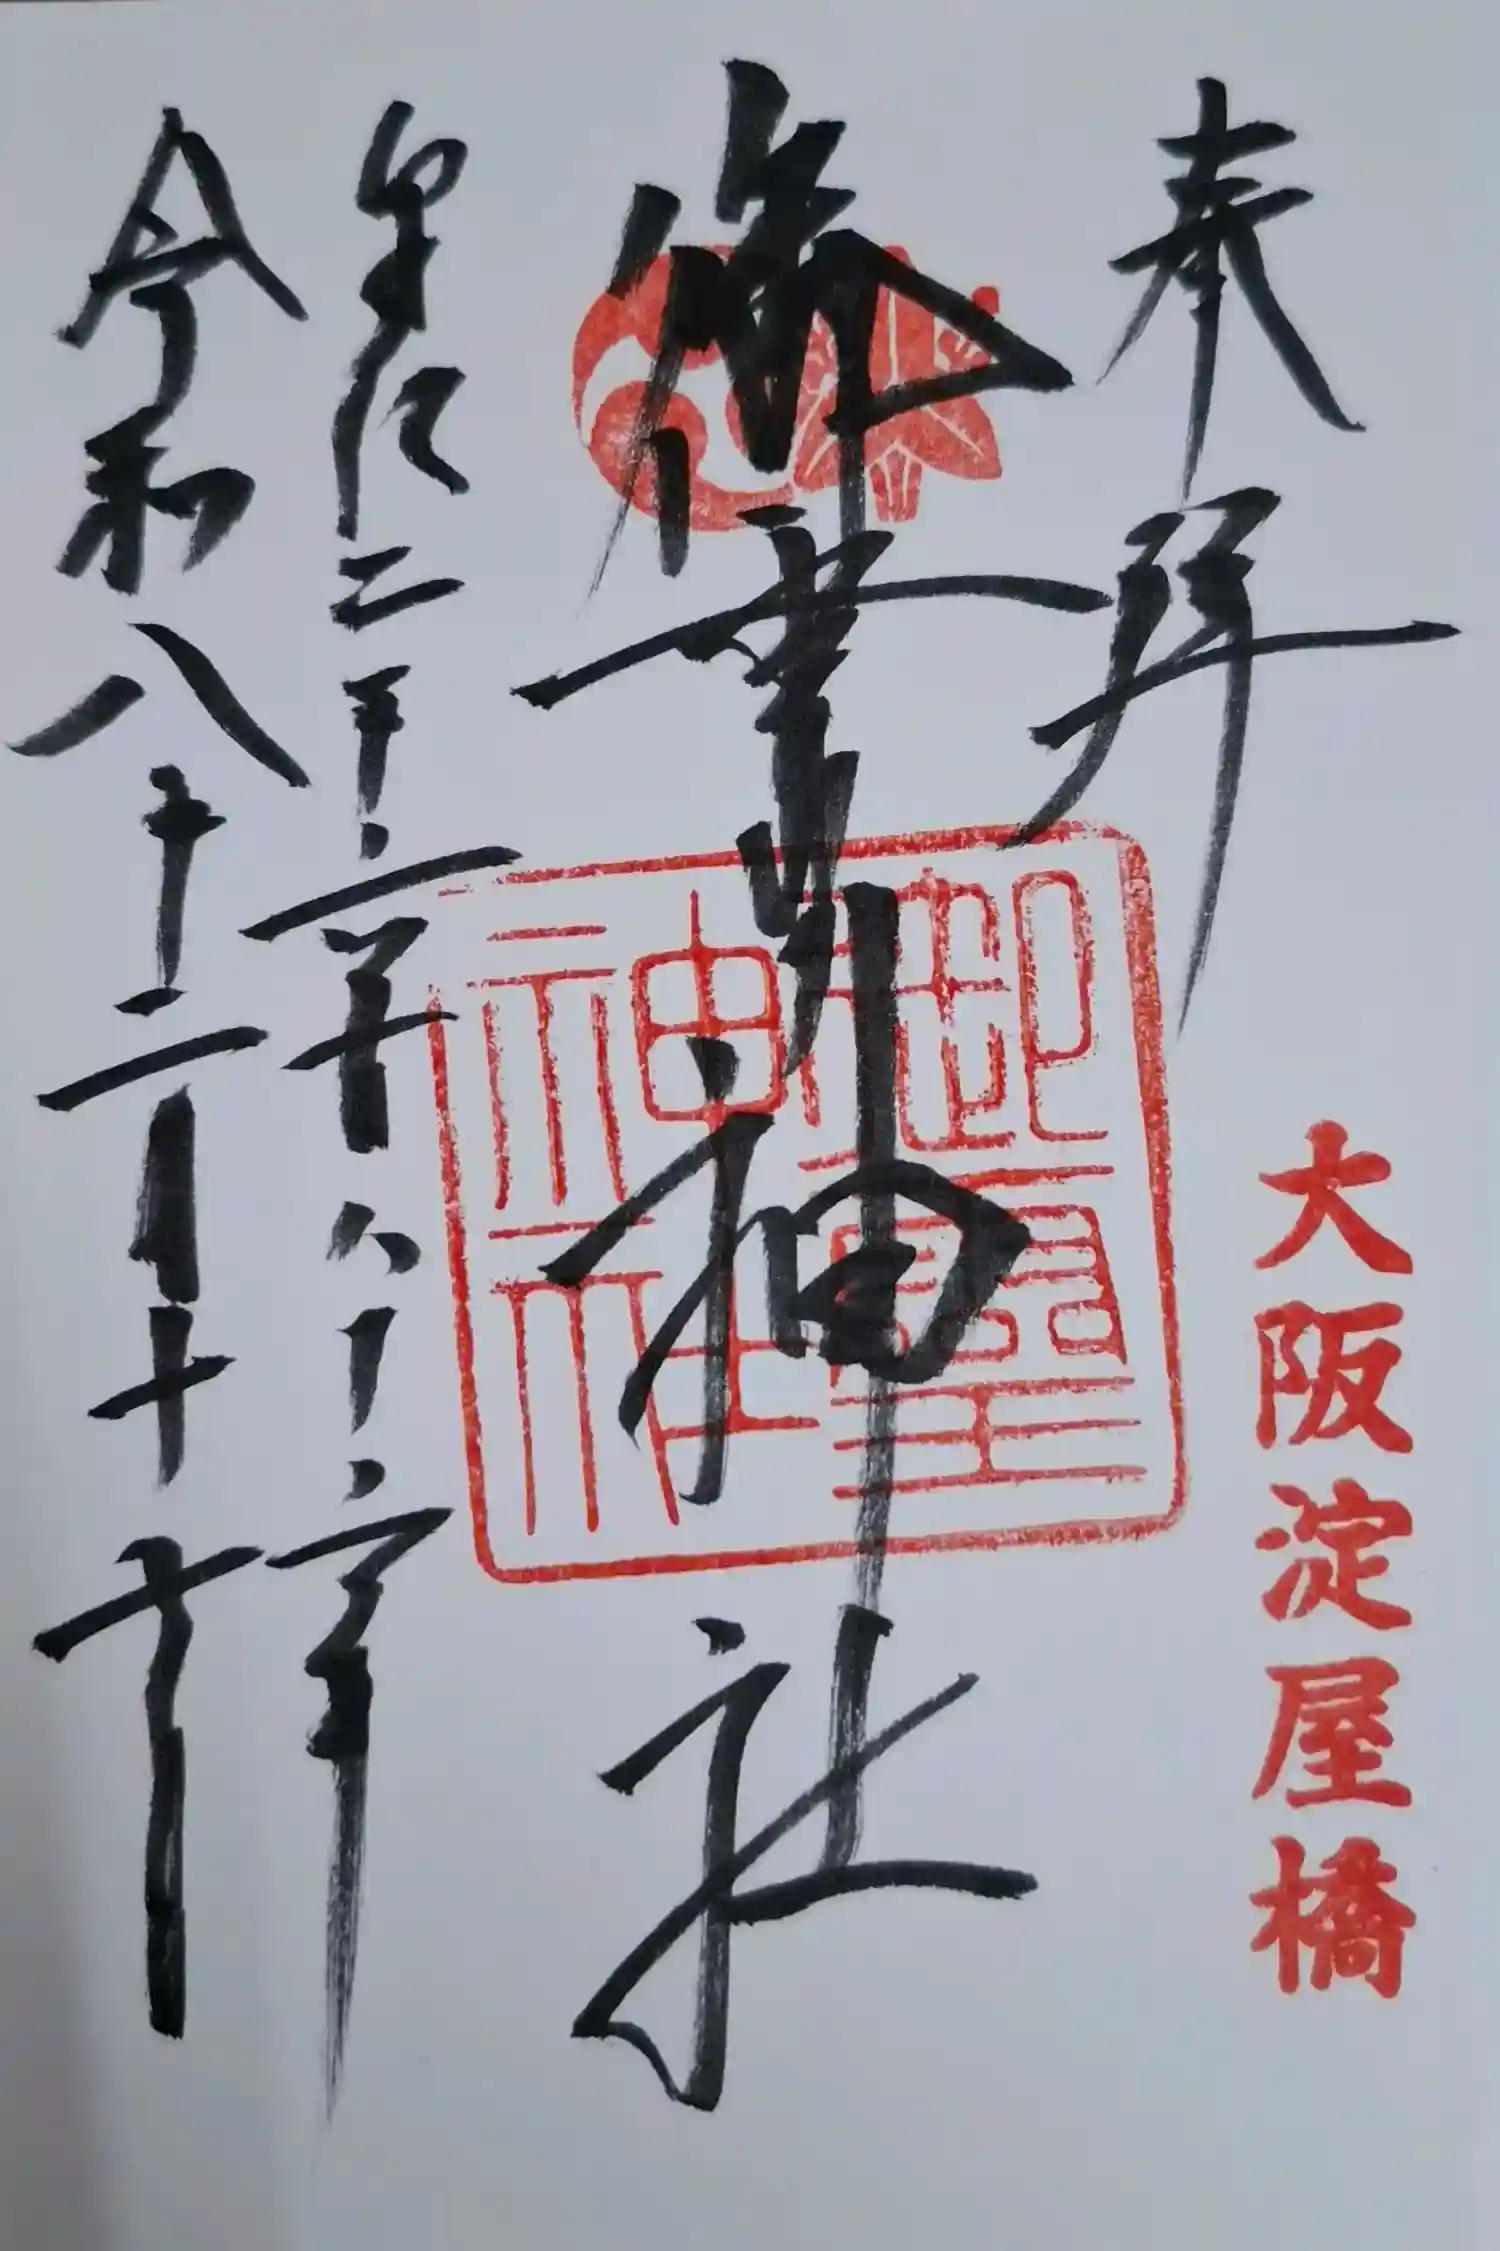 奉拝
大阪淀屋橋
御霊神社
御靈神社
皇紀二千六百八十六年
令和八年二月十七日